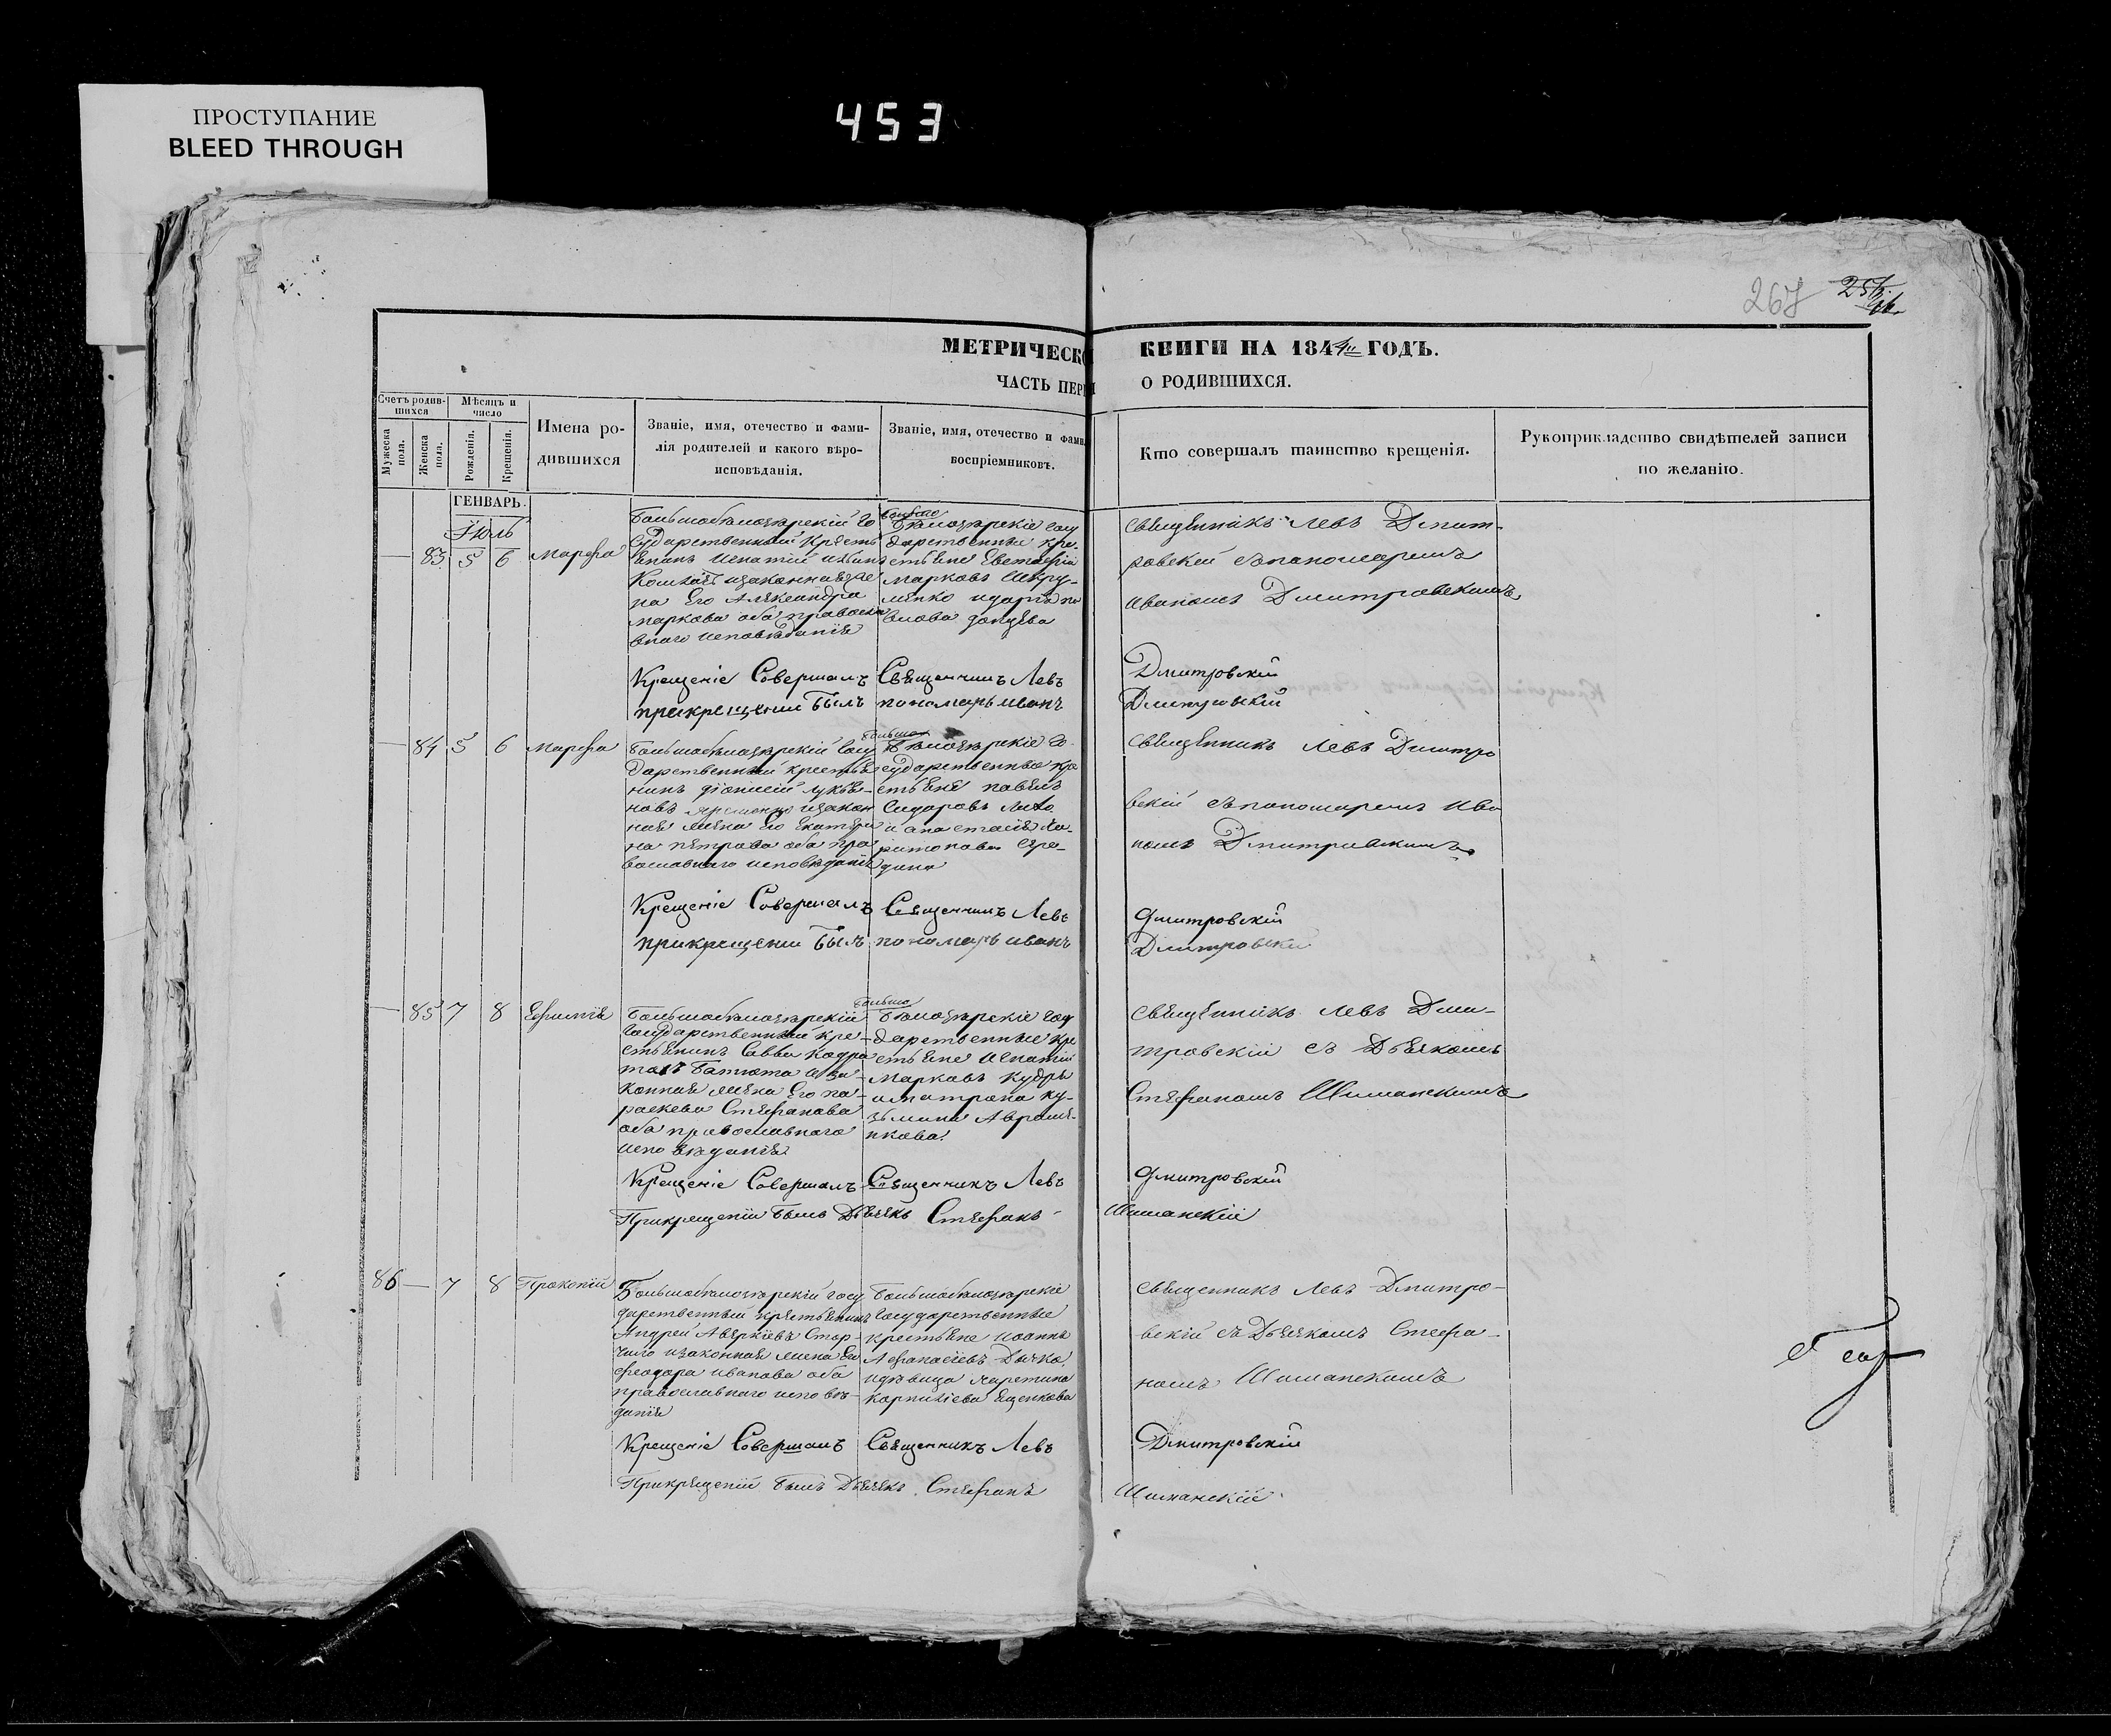 ПРОСТУПАНИЕ
BLEED THROUGH
453
267
МЕТРИЧЕСКО КНИГИ НА 1844 ГОДЪ.
ЧАСТЬ ПЕРВ О РОДИВШИХСЯ.
Счетъ родив-
шихся
Мужеска
пола.
Женска
пола.
Мѣсяцъ и
число
Рожденія.
Крещенія.
Имена ро-
дившихся
Званіе, имя, отечество и фами-
лія родителей и какого вѣро-
исповѣданія.
Званіе, имя, отечество и фами
воспріемниковъ.
Кто совершалъ таинство крещенія.
Рукоприкладство свидѣтелей записи
по желанію.
ГЕНВАРЬ.
Іюль
— 83 5 6 Марѳа
Большобѣлозѣрскій го
сударственный Кресть
янинъ Игнатій
изаконнаяже
на Его Александра
маркова оба правосла
внаго исповѣданія
Больше
Бѣлозѣрскіе госу
дарственные кре-
стьяне Евстафій
Марковъ
идарья па
влова донцева
Священникъ Левъ Дмит-
ровскій спономаремъ
иваномъ Дмитровскимъ
Крещеніе Совершалъ Священникъ Левъ Дмитровскій
прикрещеніи Былъ пономарь иванъ Дмитровскій
— 84 5 6 Марѳа
Большобѣлозѣрскій госу
дарственный крестья
нинъ діонисій лукья-
новъ изакон
ная жена Его Екатери
на петрова оба пра
вославнаго исповѣданія
Больше
Бѣлозѣрскіе го-
сударственные кре
стьяне павелъ
Сидоровъ
и анастасія ха-
ритонова Сере-
дина
Священникъ Левъ Дмитро
вскій спономаремъ ива
номъ Дмитровскимъ
Крещеніе Совершалъ Священникъ Левъ Дмитровскій
прикрещеніи Былъ пономарь иванъ Дмитровскій
— 85 7 8 Евфимія
Большобѣлозѣрскій
государственный кре-
стьянинъ Савва Кодра
товъ Батюта иза-
конная жена Его па-
раскева Стефанова
оба православнаго
исповѣданія
Больше
Бѣлозѣрскіе госу
дарственные кре
стьяне Игнатій
Марковъ Кудрь
иматрона ку-
зьмина Авраме-
нкова.
Священникъ Левъ Дми-
тровскій съ Дьячкомъ
Стефаномъ Шиманскимъ
Крещеніе Совершалъ Священникъ Левъ Дмитровскій
Прикрещеніи былъ Дьячекъ Стефанъ Шиманскій
86 — 7 8 Прокопій
Большобѣлозѣрскій госу
дарственный крестьянинъ
Андрей Аверкіевъ Стар-
чило изаконная жена Его
феодора иванова оба
православнаго исповѣ-
данія
Большобѣлозѣрскіе
Государственные
крестьяне Иоаннъ
Афанасіевъ Дычко,
идѣвица
карпиліева Яценкова
Священникъ Левъ Дмитро-
вскій съ Дьячкомъ Стефа-
номъ Шиманскимъ
Крещеніе Совершалъ Священникъ Левъ Дмитровскій
Прикрещеніи былъ Дьячекъ Стефанъ Шиманскій